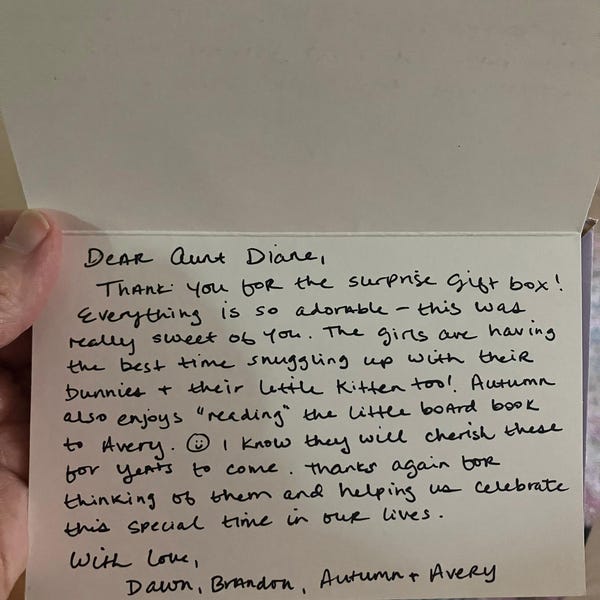 Dear Aunt Diane,
Thank you for the surprise gift box!
Everything is so adorable – this was
really sweet of you. The girls are having
the best time snuggling up with their
bunnies + their little kitten too! Autumn
also enjoys "reading" the little board book
to Avery. ☺ I know they will cherish these
for years to come. Thanks again for
thinking of them and helping us celebrate
this special time in our lives.
With Love,
Dawn, Brandon, Autumn + Avery